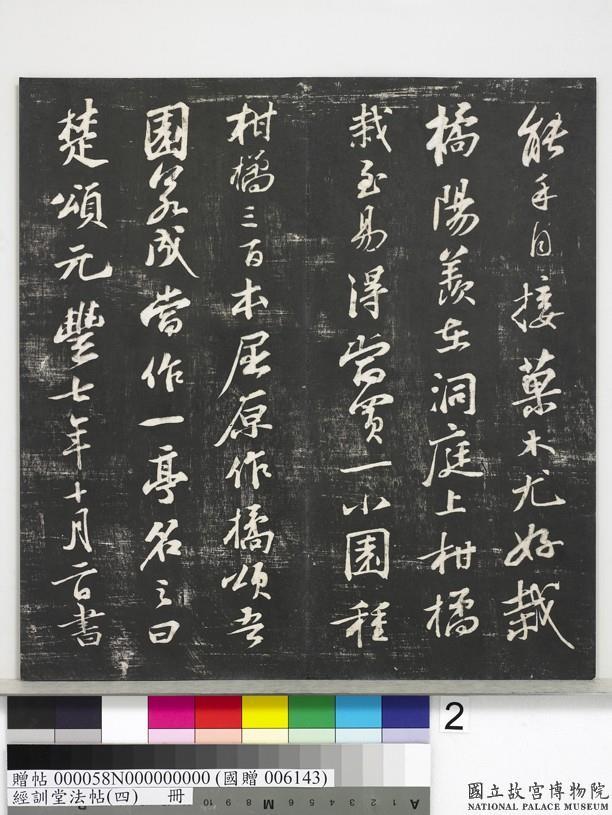 能手自接菓木尤好栽
橘陽羨在洞庭上柑橘
栽至易得當買一小園種
柑橘三百本屈原作橘頌吾
園若成當作一亭名之曰
楚頌元豐七年十月二日書
2
贈帖 000058N000000000 (國贈 006143)
經訓堂法帖(四) 冊
國立故宮博物院
NATIONAL PALACE MUSEUM